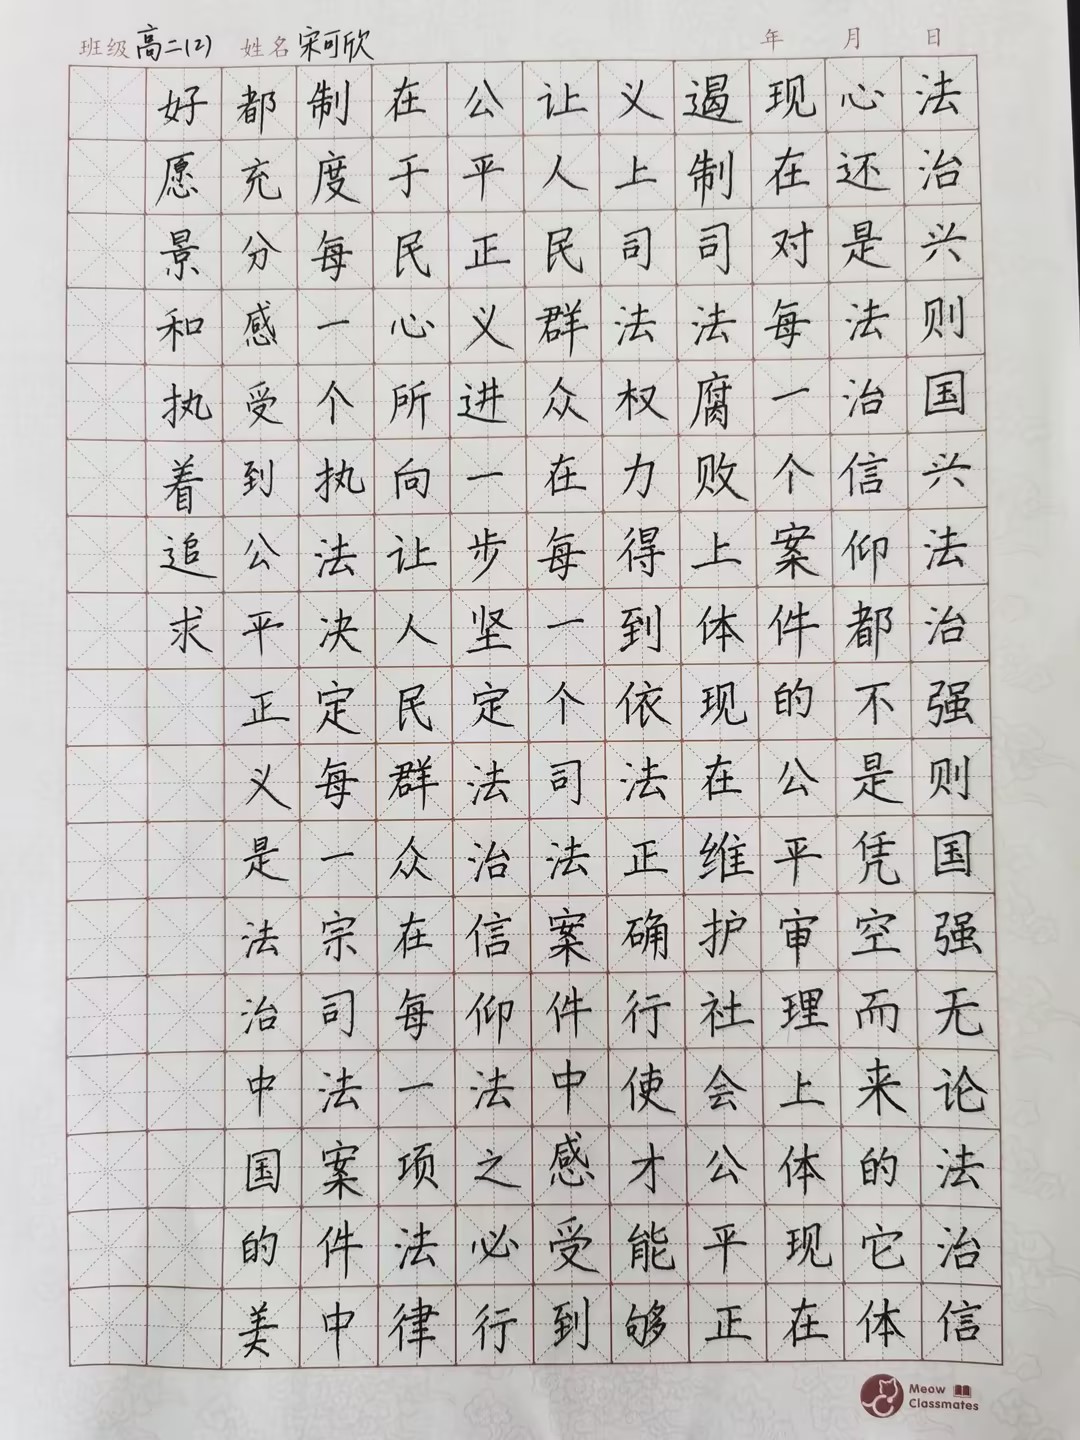 班级高二(2) 姓名宋可欣 年 月 日
法治兴则国兴法治强则国强无论法治信
心还是法治信仰都不是凭空而来的它体
现在对每一个案件的公平审理上体现在
遏制司法腐败上体现在维护社会公平正
义上司法权力得到依法正确行使才能够
让人民群众在每一个司法案件中感受到
公平正义进一步坚定法治信仰法之必行
在于民心所向让人民群众在每一项法律
制度每一个执法决定每一宗司法案件中
都充分感受到公平正义是法治中国的美
好愿景和执着追求
Meow
Classmates